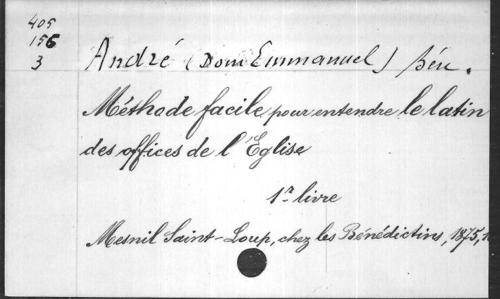 405
156
3
André (Dom Emmanuel) bén.
Méthode facile pour entendre le latin
des offices de l'Eglise
1r livre
Mesnil Saint-Loup, chez les Bénédictins, 1875,